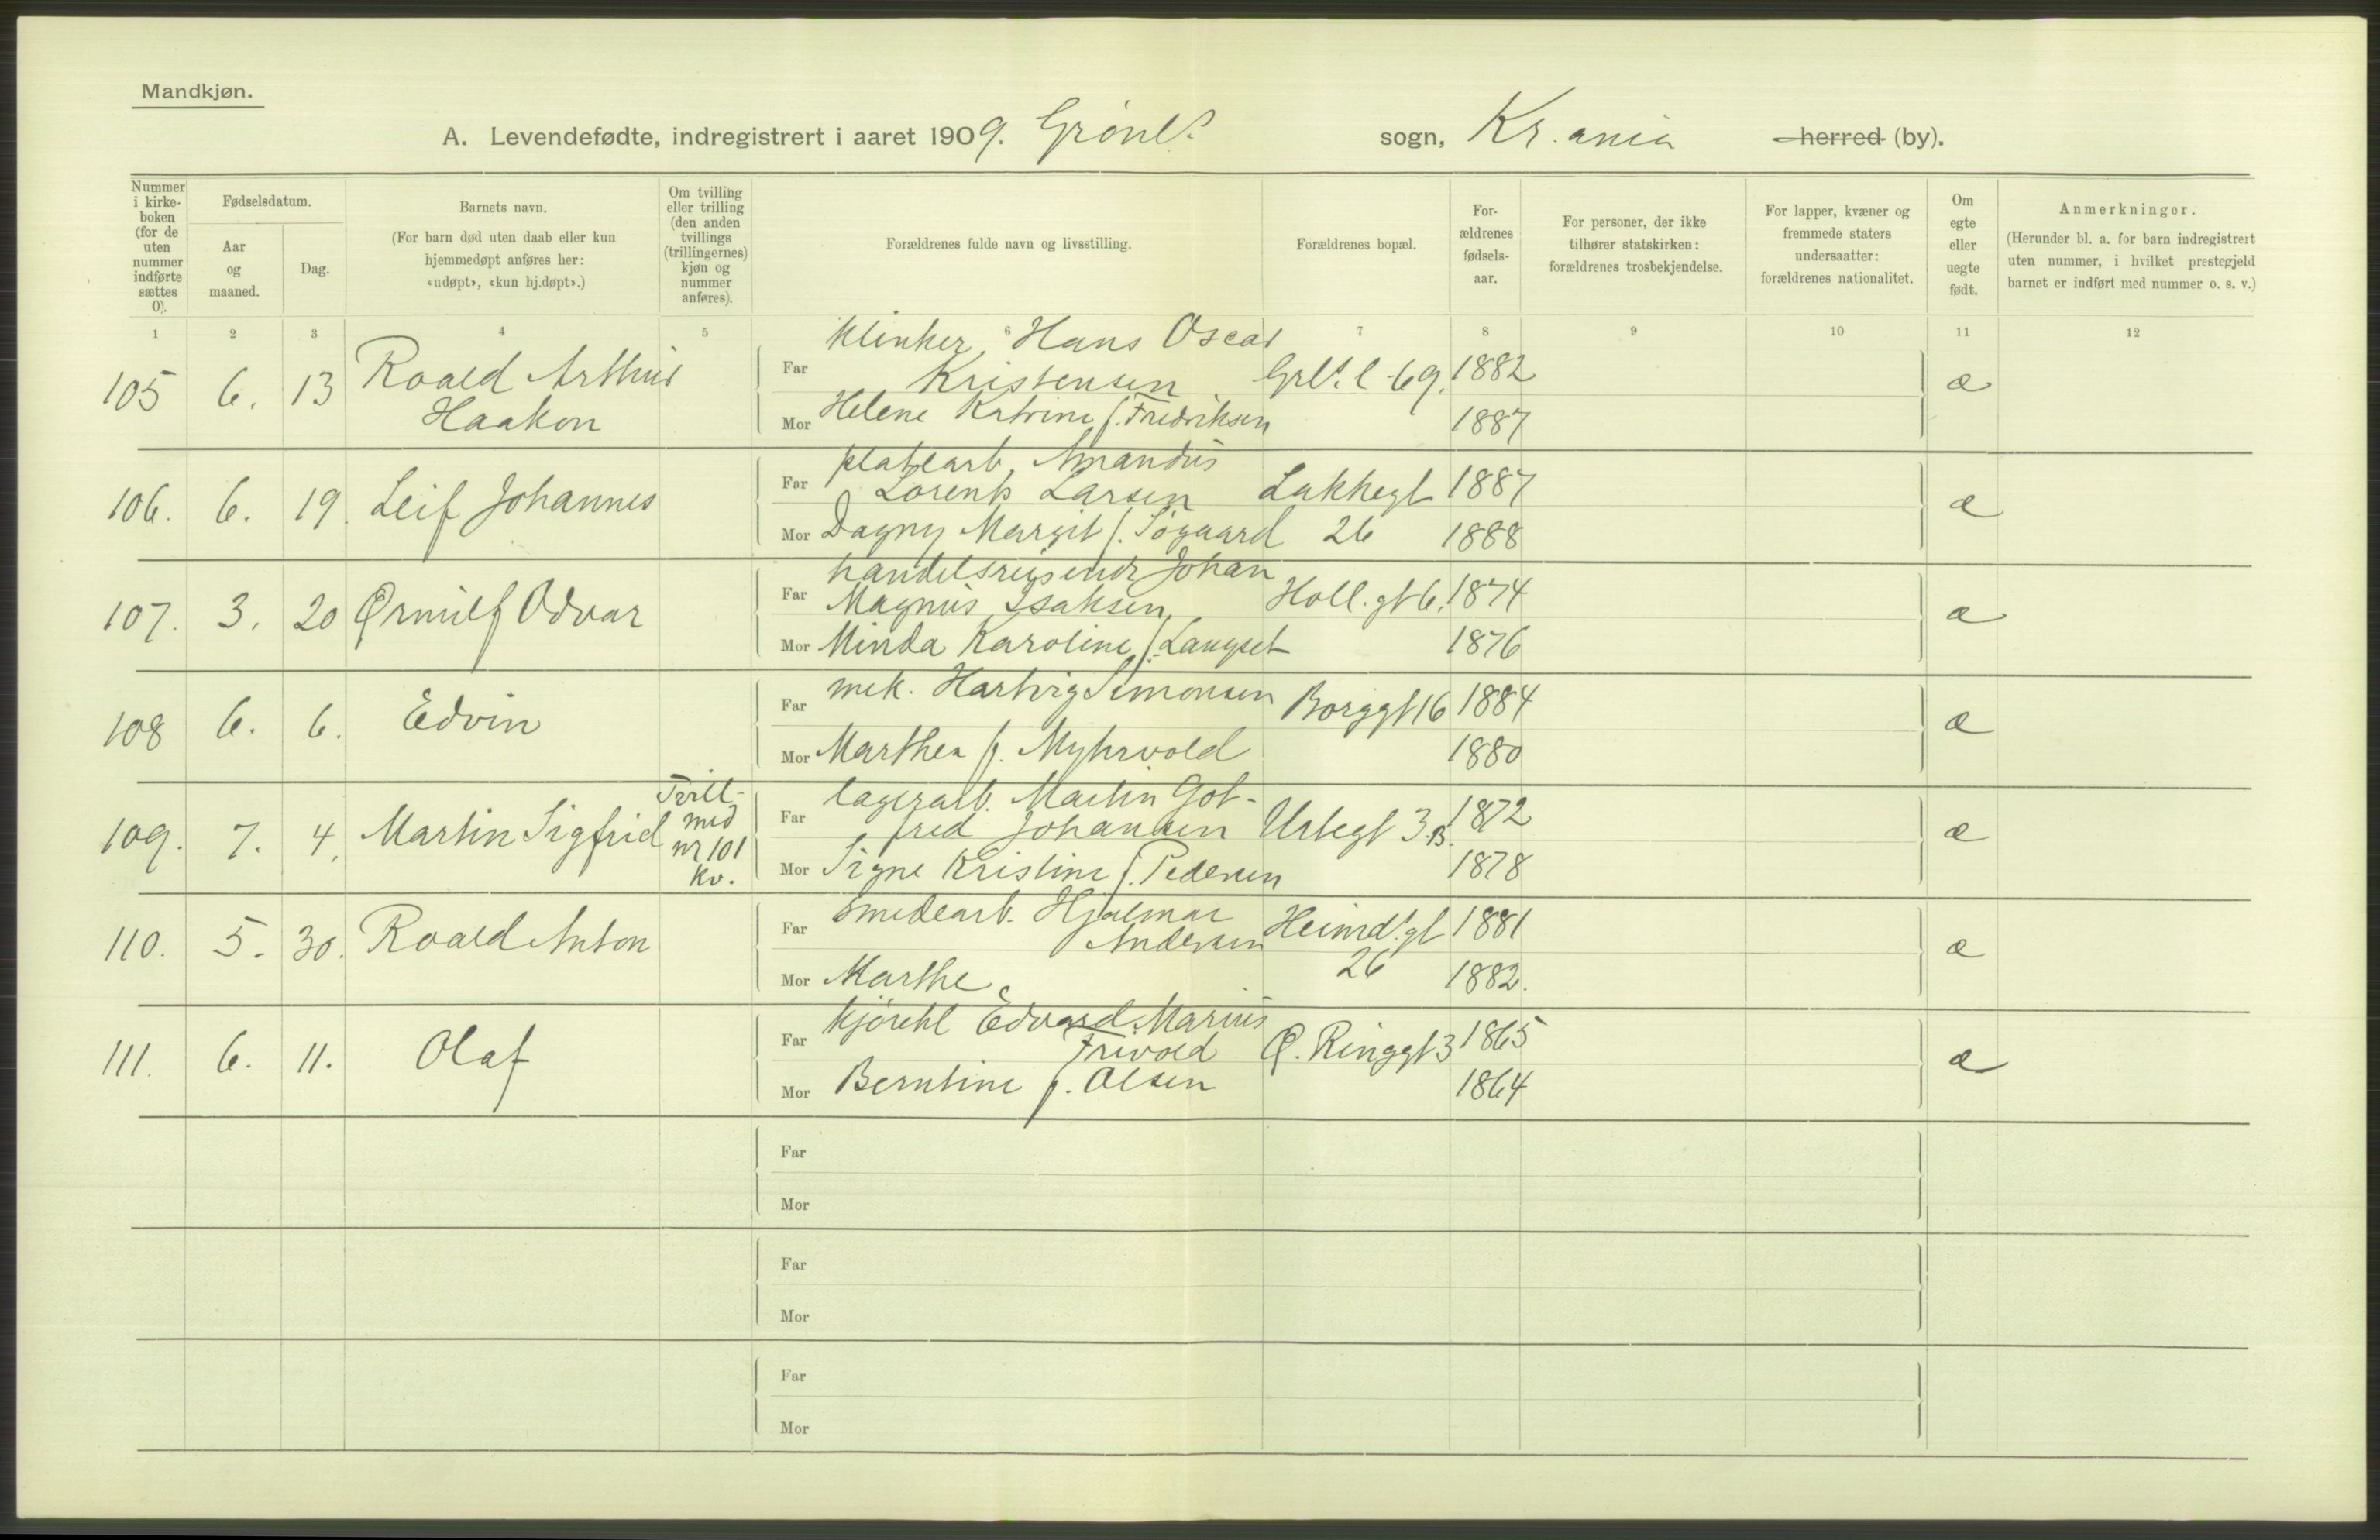 Mandkjøn.
A. Levendefødte, indregistrert i aaret 1909. Grønl. sogn, Kr.ania herred (by).
Nummer i kirke-boken (for de uten nummer indførte sættes 0).
Fødselsdatum.
Aar og maaned.
Dag.
Barnets navn.
(For barn død uten daab eller kun hjemmedøpt anføres her: «udøpt», «kun hj.døpt».)
Om tvilling eller trilling (den anden tvillings (trillingernes) kjøn og nummer anføres).
Forældrenes fulde navn og livsstilling.
Forældrenes bopæl.
For-ældrenes fødsels-aar.
For personer, der ikke tilhører statskirken: forældrenes trosbekjendelse.
For lapper, kvæner og fremmede staters undersaatter: forældrenes nationalitet.
Om egte eller uegte født.
Anmerkninger.
(Herunder bl. a. for barn indregistrert uten nummer, i hvilket prestegjeld barnet er indført med nummer o. s. v.)
1 2 3 4 5 6 7 8 9 10 11 12
105 6. 13 Roald Arthur Haakon
Far Klinker, Hans Oscar Kristensen Grl.s l. 69. 1882 æ
Mor Helene Katrine f. Fredriksen 1887
106. 6. 19. Leif Johannes
Far platearb. Amandus Lorents Larsen Lakkegt 1887 æ
Mor Dagny Margit f. Søgaard 26 1888
107. 3. 20 Ørnulf Odvar
Far handelsreisende Johan Magnus Isaksen Holl.gt 6. 1874 æ
Mor Minda Karoline f. Langset 1876
108 6. 6. Edvin
Far mek. Hartvig Simonsen Borggt 16 1884 æ
Mor Marthea f. Myhrvold 1880
109. 7. 4. Martin Sigfrid Tvill. med nr 101 kv.
Far lagerarb. Martin Got-fred Johansen Urtegt 3 B. 1872 æ
Mor Signe Kristine f. Pedersen 1878
110. 5. 30. Roald Anton
Far Smedearb. Hjalmar Andersen Heimd.gt 1881 æ
Mor Marthe 26 1882.
111. 6. 11. Olaf
Far Kjørekl Edvard Marius Frivold Ø. Ringgt 3 1865 æ
Mor Berntine f. Olsen 1864
Far
Mor
Far
Mor
Far
Mor